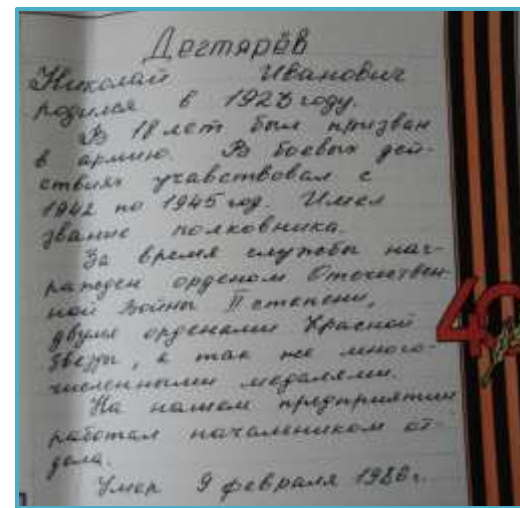 Дегтярёв
Николай Иванович
родился в 1923 году.
В 18 лет был призван
в армию. В боевых дей-
ствиях учавствовал с
1942 по 1945 год. Имел
звание полковника.
За время службы наг-
ражден орденом Отечествен-
ной Войны II степени,
двумя орденами Красной
Звезды, а так же много-
численными медалями.
На нашем предприятии
работал начальником от-
дела.
Умер 9 февраля 1986 г.
40